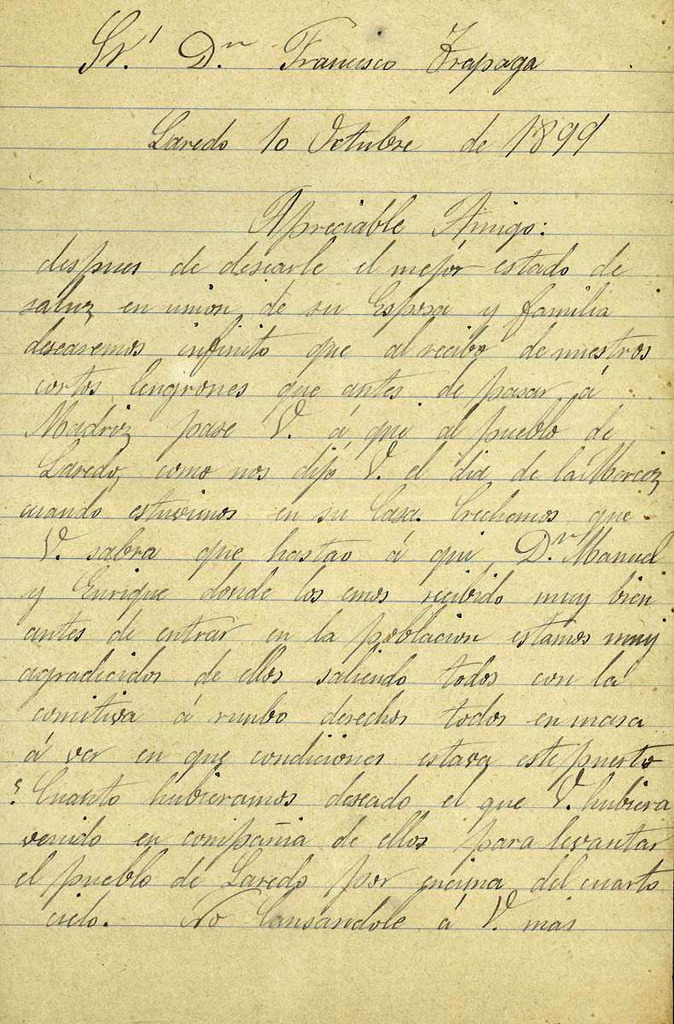 Sr. Dn Francisco Zrapaga
Laredo 10 Octubre de 1899
Apreciable Amigo:
despues de desearle el mejor estado de
saluz en union de su Esposa y familia
desearemos infinito que al recibo de nuestros
cortos lengrones que antes de pasar á
Madriz pase V. á qui al pueblo de
Laredo, como nos dijo V. el dia de la Merced
cuando estuvimos en su Casa. Crehemos que
V. sabra que hastao á qui Dn Manuel
y Enrique donde los emos recibido muy bien
antes de entrar en la poblacion estamos muy
agradecidos de ellos saliendo todos con la
comitiva á rumbo derechos todos en masa
á ver en que condiciones estava este puerto
¿Cuanto hubieramos deseado el que V. hubiera
venido en compañia de ellos para levantar
el pueblo de Laredo por encima del cuarto
cielo. No Cansandole á V. mas